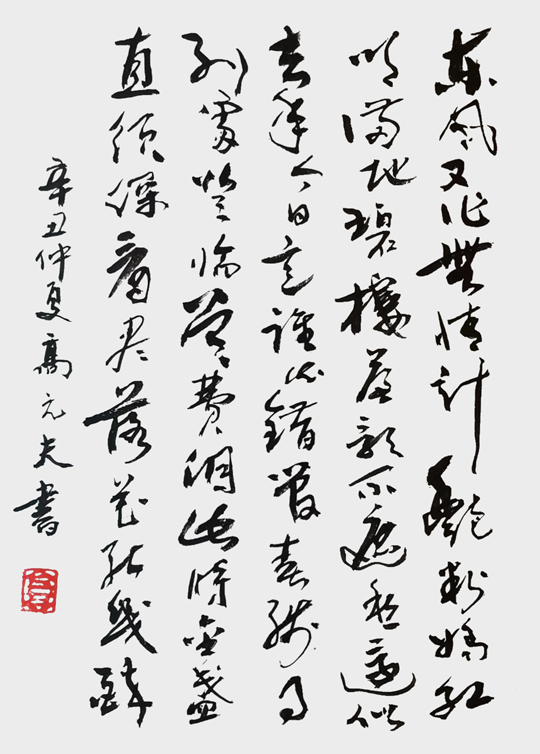 東風又作無情計艷粉嬌紅
吹滿地碧樓簾影不遮愁還似
去年今日意誰知錯管春殘事
到處登臨曾費泪此時金盞
直須深看盡落花能幾醉
辛丑仲夏高元夫書